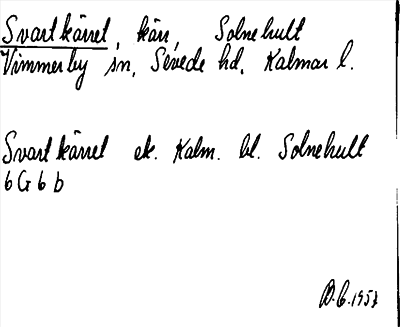 Svartkärret, kärr, Solnehult
Vimmerby sn, Sevede hd, Kalmar l.
Svartkärret ek. Kalm. bl. Solnehult
6G6b